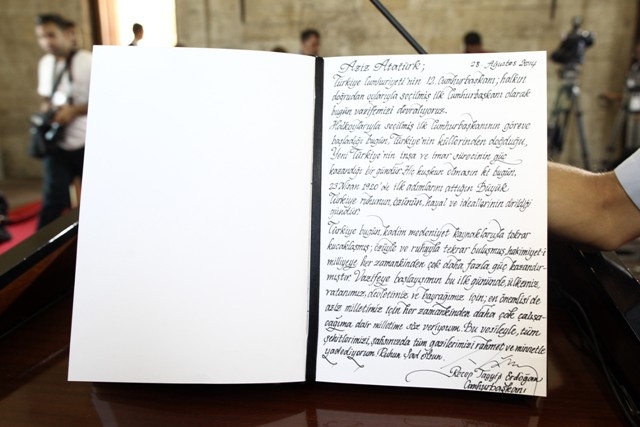 Aziz Atatürk;
28. Ağustos 2014
Türkiye Cumhuriyeti'nin 12. Cumhurbaşkanı; halkın
doğrudan oylarıyla seçilmiş ilk Cumhurbaşkanı olarak
bugün vazifemizi devralıyoruz.
Halkoylarıyla seçilmiş ilk Cumhurbaşkanının göreve
başladığı bugün, Türkiye'nin küllerinden doğduğu,
Yeni Türkiye'nin inşa ve imar sürecinin güç
kazandığı bir gündür. Hiç kuşkun olmasın ki bugün,
23 Nisan 1920'de ilk adımlarını attığın Büyük
Türkiye ruhunun, özünün, hayal ve ideallerinin dirildiği
gündür.
Türkiye bugün, kadim medeniyet kaynaklarıyla tekrar
kucaklaşmış; özüyle ve ruhuyla tekrar buluşmuş, hakimiyet-i
milliyeye her zamankinden çok daha fazla güç kazandır-
mıştır. Vazifeye başlayışımın bu ilk gününde, ülkemiz,
vatanımız, devletimiz ve bayrağımız için; en önemlisi de
aziz milletimiz için her zamankinden daha çok çalışa-
cağıma dair milletime söz veriyorum. Bu vesileyle, tüm
şehitlerimizi, şahsınızda tüm gazilerimizi rahmet ve minnetle
yadediyorum. Ruhun Şad olsun.
Recep Tayyip Erdoğan
Cumhurbaşkanı